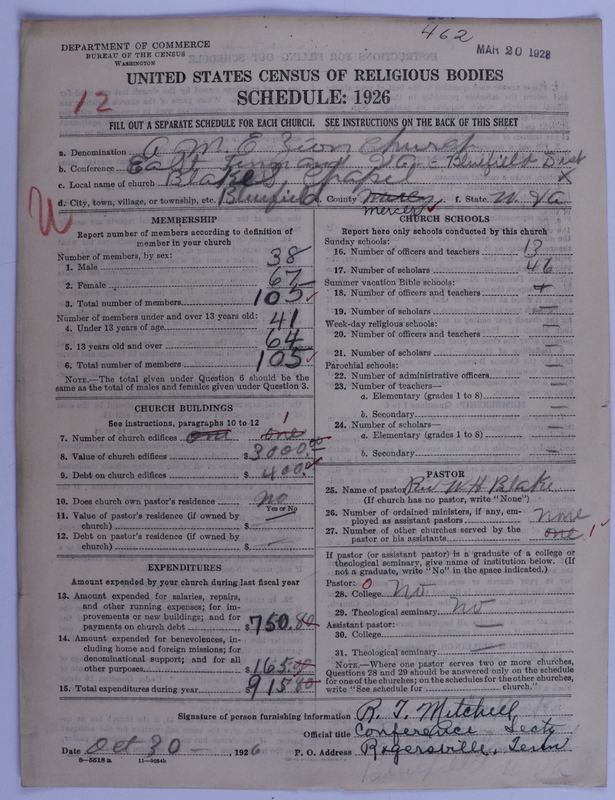 462
DEPARTMENT OF COMMERCE
BUREAU OF THE CENSUS
WASHINGTON
MAR 20 1928
UNITED STATES CENSUS OF RELIGIOUS BODIES
SCHEDULE: 1926
12
FILL OUT A SEPARATE SCHEDULE FOR EACH CHURCH. SEE INSTRUCTIONS ON THE BACK OF THIS SHEET
a. Denomination A. M. E. Zion Church
b. Conference East Tenn and Va - Bluefield Dist
c. Local name of church Blake's Chapel X
d. City, town, village, or township, etc. Bluefield County Mercer f. State W. Va
Mercer ✓
MEMBERSHIP
Report number of members according to definition of member in your church
Number of members, by sex:
1. Male 38
2. Female 67
3. Total number of members 105 ✓
Number of members under and over 13 years old:
4. Under 13 years of age 41
5. 13 years old and over 64
6. Total number of members 105 ✓
NOTE.—The total given under Question 6 should be the same as the total of males and females given under Question 3.
CHURCH BUILDINGS
See instructions, paragraphs 10 to 12
7. Number of church edifices one one 1
8. Value of church edifices $ 3000.00
9. Debt on church edifices $ 400.00
10. Does church own pastor's residence No
Yes or No
11. Value of pastor's residence (if owned by church) $ —
12. Debt on pastor's residence (if owned by church) $ —
EXPENDITURES
Amount expended by your church during last fiscal year
13. Amount expended for salaries, repairs, and other running expenses; for improvements or new buildings; and for payments on church debt $ 750.80
14. Amount expended for benevolences, including home and foreign missions; for denominational support; and for all other purposes $ 165.00
15. Total expenditures during year $ 915.80
CHURCH SCHOOLS
Report here only schools conducted by this church
Sunday schools:
16. Number of officers and teachers 13
17. Number of scholars 46
Summer vacation Bible schools:
18. Number of officers and teachers
19. Number of scholars —
Week-day religious schools:
20. Number of officers and teachers —
21. Number of scholars —
Parochial schools:
22. Number of administrative officers —
23. Number of teachers—
a. Elementary (grades 1 to 8) —
b. Secondary —
24. Number of scholars—
a. Elementary (grades 1 to 8) —
b. Secondary —
PASTOR
25. Name of pastor Rev W H Blake
(If church has no pastor, write "None")
26. Number of ordained ministers, if any, employed as assistant pastors none
27. Number of other churches served by the pastor or his assistants one 1 ✓
If pastor (or assistant pastor) is a graduate of a college or theological seminary, give name of institution below. (If not a graduate, write "No" in the space indicated.)
Pastor: 0
28. College No
29. Theological seminary No
Assistant pastor:
30. College —
31. Theological seminary —
NOTE.—Where one pastor serves two or more churches, Questions 28 and 29 should be answered only on the schedule for one of the churches; on the schedules for the other churches, write "See schedule for church."
Signature of person furnishing information R. T. Mitchell
Official title Conference Secty
Date Oct 30 — , 1926 P. O. Address Rogersville, Tenn
8—5518a 11—9064b